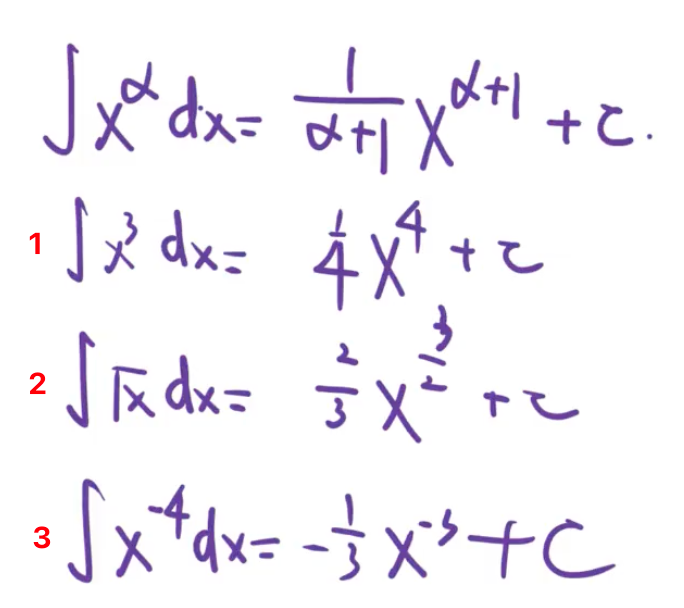 ∫x^α dx = 1/(α+1) x^(α+1) + C.
1 ∫x^3 dx = 1/4 x^4 + C
2 ∫√x dx = 2/3 x^(3/2) + C
3 ∫x^-4 dx = -1/3 x^-3 + C